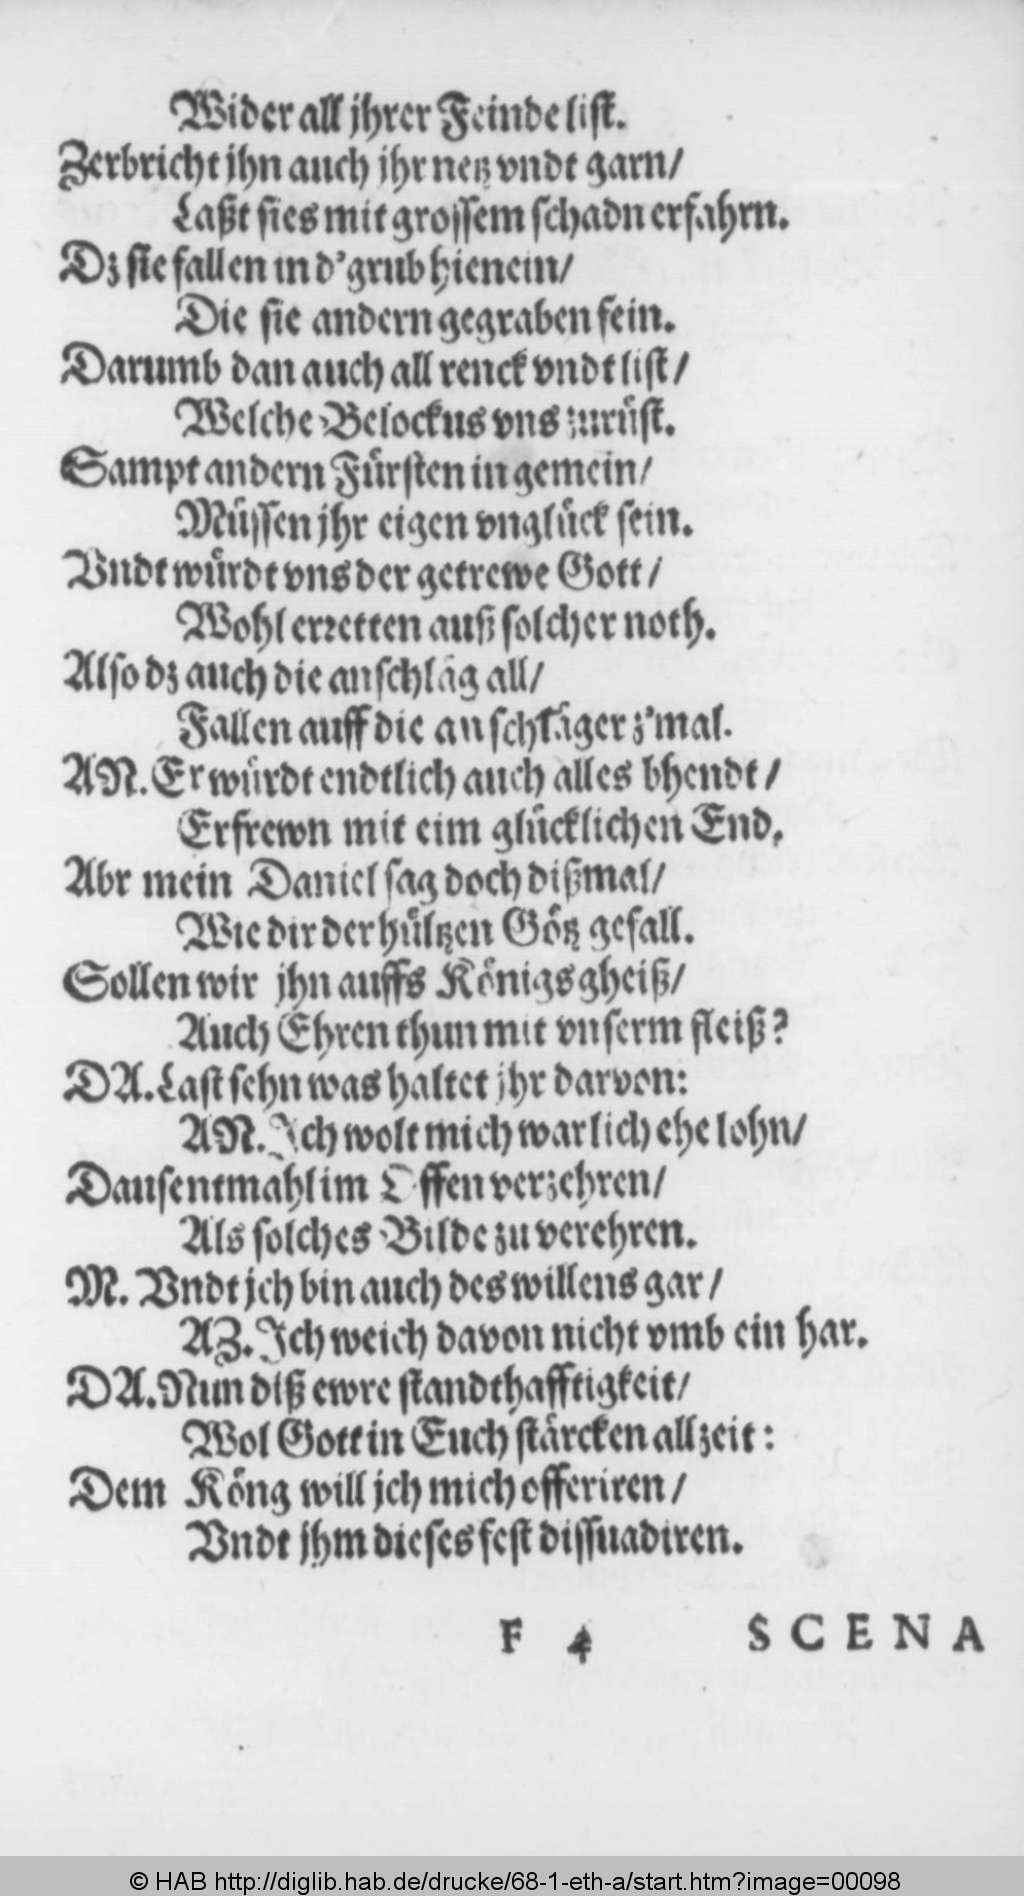 Wider all jhrer Feinde list.
Zerbricht jhn auch jhr netz vndt garn/
Laßt sies mit grossem schadn erfahrn.
Dz sie fallen in d'grub hienein/
Die sie andern gegraben fein.
Darumb dan auch all renck vndt list/
Welche Belockus vns zurüst.
Sampt andern Fürsten in gemein/
Müssen jhr eigen vnglück sein.
Vndt würdt vns der getrewe Gott/
Wohl erretten auß solcher noth.
Also dz auch die anschläg all/
Fallen auff die anschläger z'mal.
AN. Er würdt endtlich auch alles bhendt/
Erfrewn mit eim glücklichen End.
Abr mein Daniel sag doch dißmal/
Wie dir der hültzen Götz gefall.
Sollen wir jhn auffs Königs gheiß/
Auch Ehren thun mit vnserm fleiß?
DA. Last sehn was haltet jhr darvon:
AN. Ich wolt mich warlich ehe lohn/
Dausentmahl im Offen verzehren/
Als solches Bilde zu verehren.
M. Vndt jch bin auch des willens gar/
AZ. Ich weich davon nicht vmb ein har.
DA. Nun diß ewre standthafftigkeit/
Wol Gott in Euch stärcken allzeit:
Dem Köng will jch mich offeriren/
Vndt jhm dieses fest dissuadiren.
F 4 SCENA
© HAB http://diglib.hab.de/drucke/68-1-eth-a/start.htm?image=00098